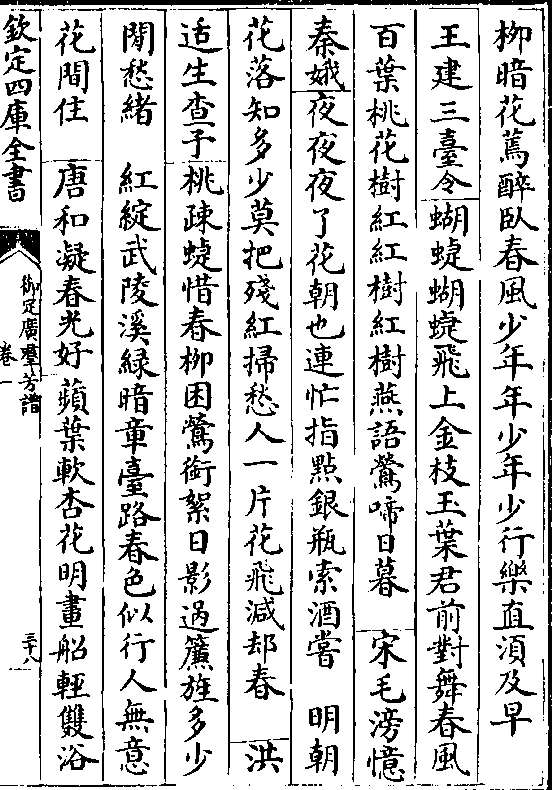 柳暗花蔫醉臥春風少年年少年少行樂直須及早
王建三臺令蝴蝶蝴蝶飛上金枝玉葉君前對舞春風
百葉桃花樹紅紅樹紅樹燕語鶯啼日暮　宋毛滂憶
秦娥夜夜夜了花朝也連忙指點銀瓶索酒嘗　明朝
花落知多少莫把殘紅掃愁人一片花飛減却春　洪
适生查子桃疎蜨惜春柳困鶯銜絮日影過簾旌多少
閒愁緒　紅綻武陵溪綠暗章臺路春色似行人無意
花間住　唐和凝春光好蘋葉軟杏花明畫船輕雙浴
欽定四庫全書
御定廣羣芳譜
卷一
三十八